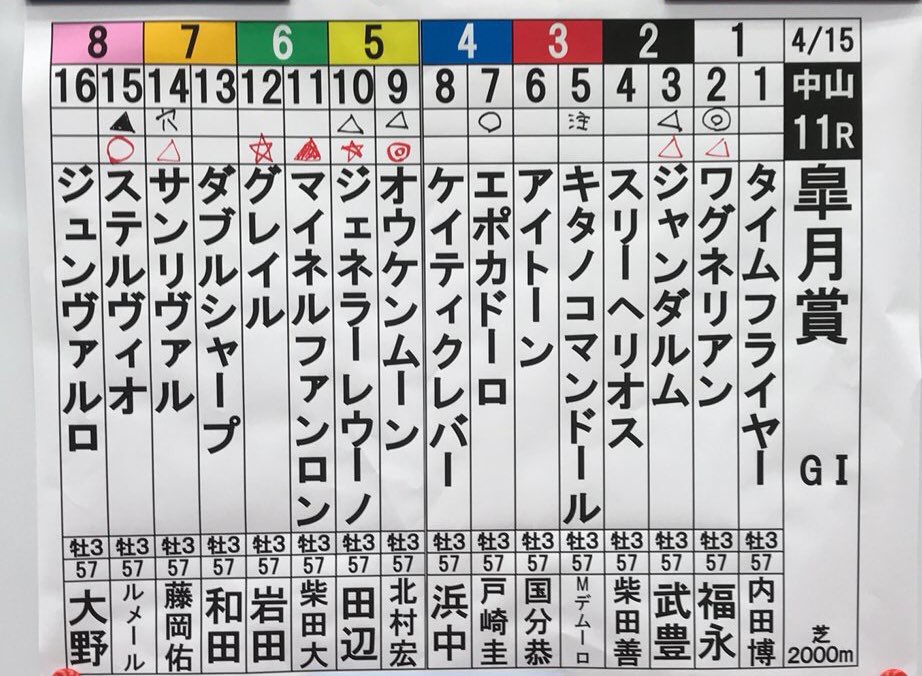 4/15
中山
11R
皐月賞 GI
芝
2000m
1
1 タイムフライヤー 牡3 57 内田博
2 ◎ △ ワグネリアン 牡3 57 福永
2
3 △ △ ジャンダルム 牡3 57 武豊
4 スリーヘリオス 牡3 57 柴田善
3
5 注 キタノコマンドール 牡3 57 Mデムーロ
6 アイトーン 牡3 57 国分恭
4
7 ○ エポカドーロ 牡3 57 戸崎圭
8 ケイティクレバー 牡3 57 浜中
5
9 △ ◎ オウケンムーン 牡3 57 北村宏
10 △ ☆ ジェネラーレウーノ 牡3 57 田辺
6
11 ▲ マイネルファンロン 牡3 57 柴田大
12 ☆ グレイル 牡3 57 岩田
7
13 ダブルシャープ 牡3 57 和田
14 穴 △ サンリヴァル 牡3 57 藤岡佑
8
15 ▲ ○ ステルヴィオ 牡3 57 ルメール
16 ジュンヴァルロ 牡3 57 大野